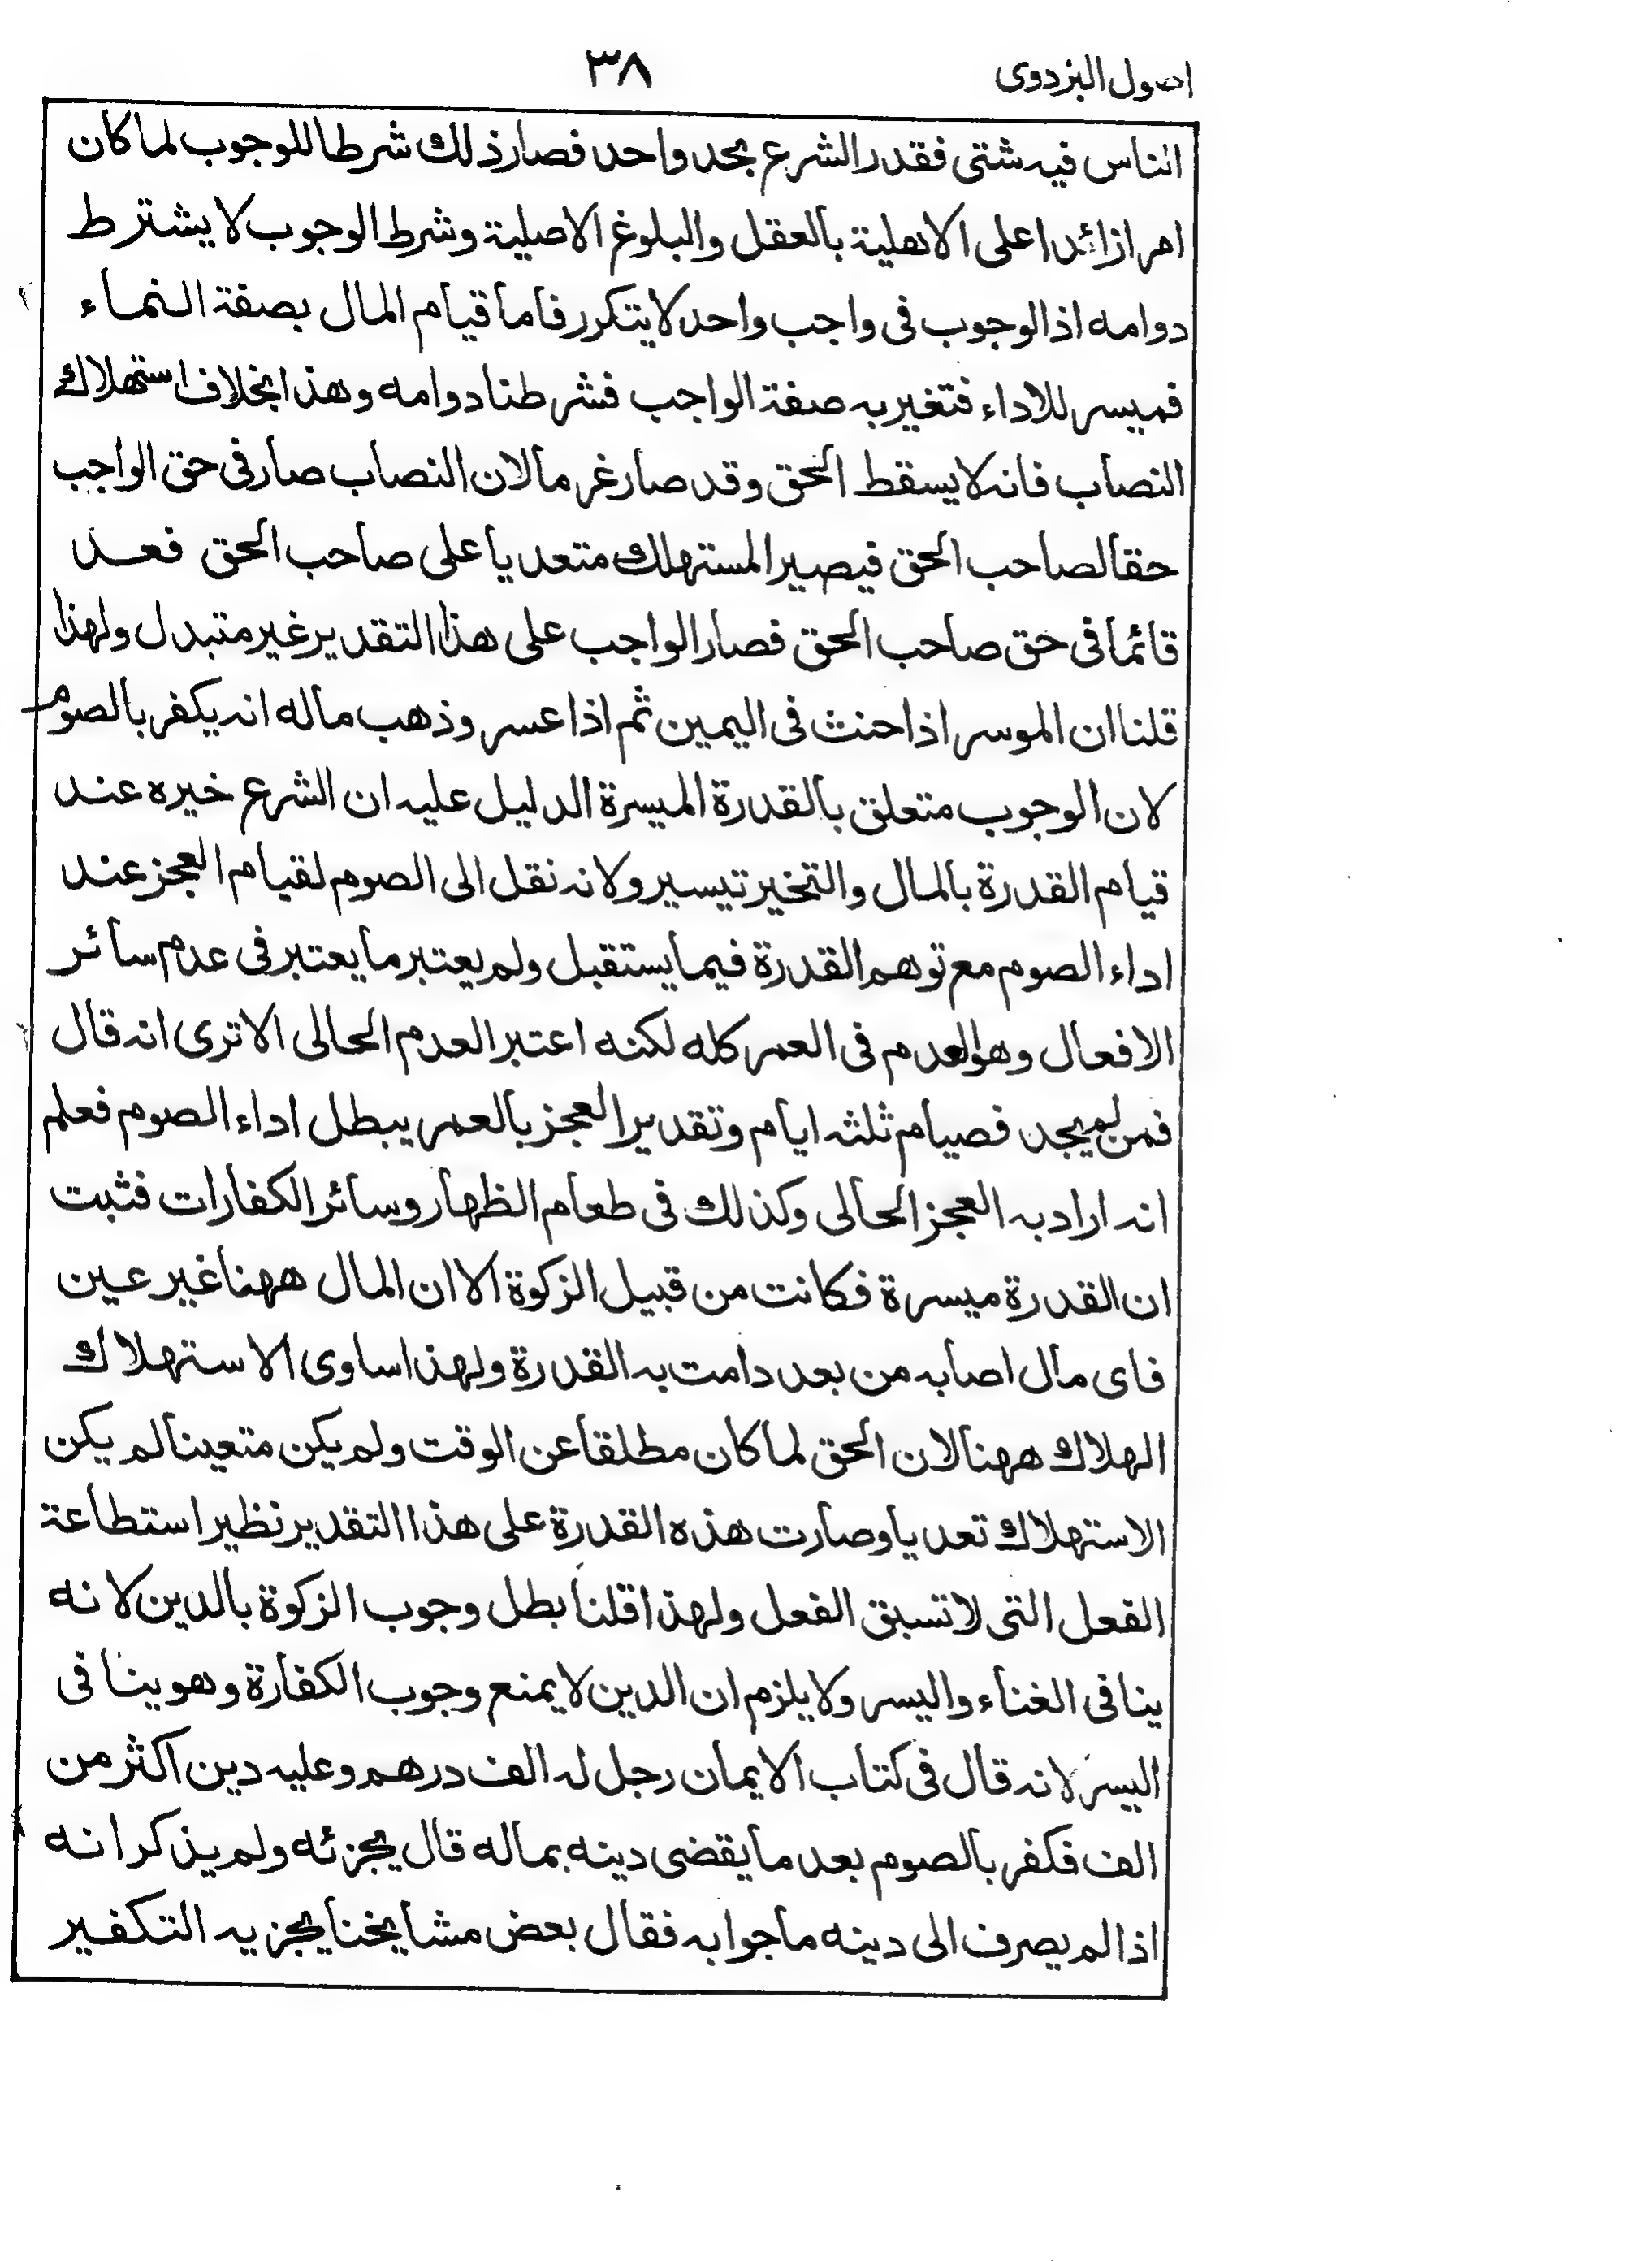 اصول البزدوى
٣٨
الناس فيه شتى فقدر الشرع بحد واحد فصار ذلك شرطا للوجوب لما كان
امرا زائدا على الاهلية بالعقل والبلوغ الاصلية وشرط الوجوب لا يشترط
دوامه اذ الوجوب فى واجب واحد لا يتكرر فاما قيام المال بصفة النماء
فميسر للاداء فتغير به صفة الواجب فشرطنا دوامه وهذا بخلاف استهلاك
النصاب فانه لا يسقط الحق وقد صار غرما لان النصاب صار فى حق الواجب
حقا لصاحب الحق فيصير المستهلك متعديا على صاحب الحق فعد
قائما فى حق صاحب الحق فصار الواجب على هذا التقدير غير متبدل ولهذا
قلنا ان الموسر اذا حنث فى اليمين ثم اذا عسر وذهب ماله انه يكفر بالصوم
لان الوجوب متعلق بالقدرة الميسرة الدليل عليه ان الشرع خيره عند
قيام القدرة بالمال والتخير تيسير ولانه نقل الى الصوم لقيام العجز عند
اداء الصوم مع توهم القدرة فيما يستقبل ولم يعتبر ما يعتبر فى عدم سائر
الافعال وهو العدم فى العمر كله لكنه اعتبر العدم الحالى الا ترى انه قال
فمن لم يجد فصيام ثلثه ايام وتقدير العجز بالعمر يبطل اداء الصوم فعلم
انه اراد به العجز الحالى وكذلك فى طعام الظهار وسائر الكفارات فثبت
ان القدرة ميسرة فكانت من قبيل الزكوة الا ان المال ههنا غير عين
فاى مال اصابه من بعد دامت به القدرة ولهذا ساوى الاستهلاك
الهلاك ههنا لان الحق لما كان مطلقا عن الوقت ولم يكن متعينا لم يكن
الاستهلاك تعديا وصارت هذه القدرة على هذا التقدير نظير استطاعة
الفعل التى لا تسبق الفعل ولهذا قلنا بطل وجوب الزكوة بالدين لانه
ينافى الغناء واليسر ولا يلزم ان الدين لا يمنع وجوب الكفارة وهو ينافى
اليسر لانه قال فى كتاب الايمان رجل له الف درهم وعليه دين اكثر من
الف فكفر بالصوم بعد ما يقضى دينه بماله قال يجزئه ولم يذكر انه
اذا لم يصرف الى دينه ما جوابه فقال بعض مشايخنا يجزيه التكفير